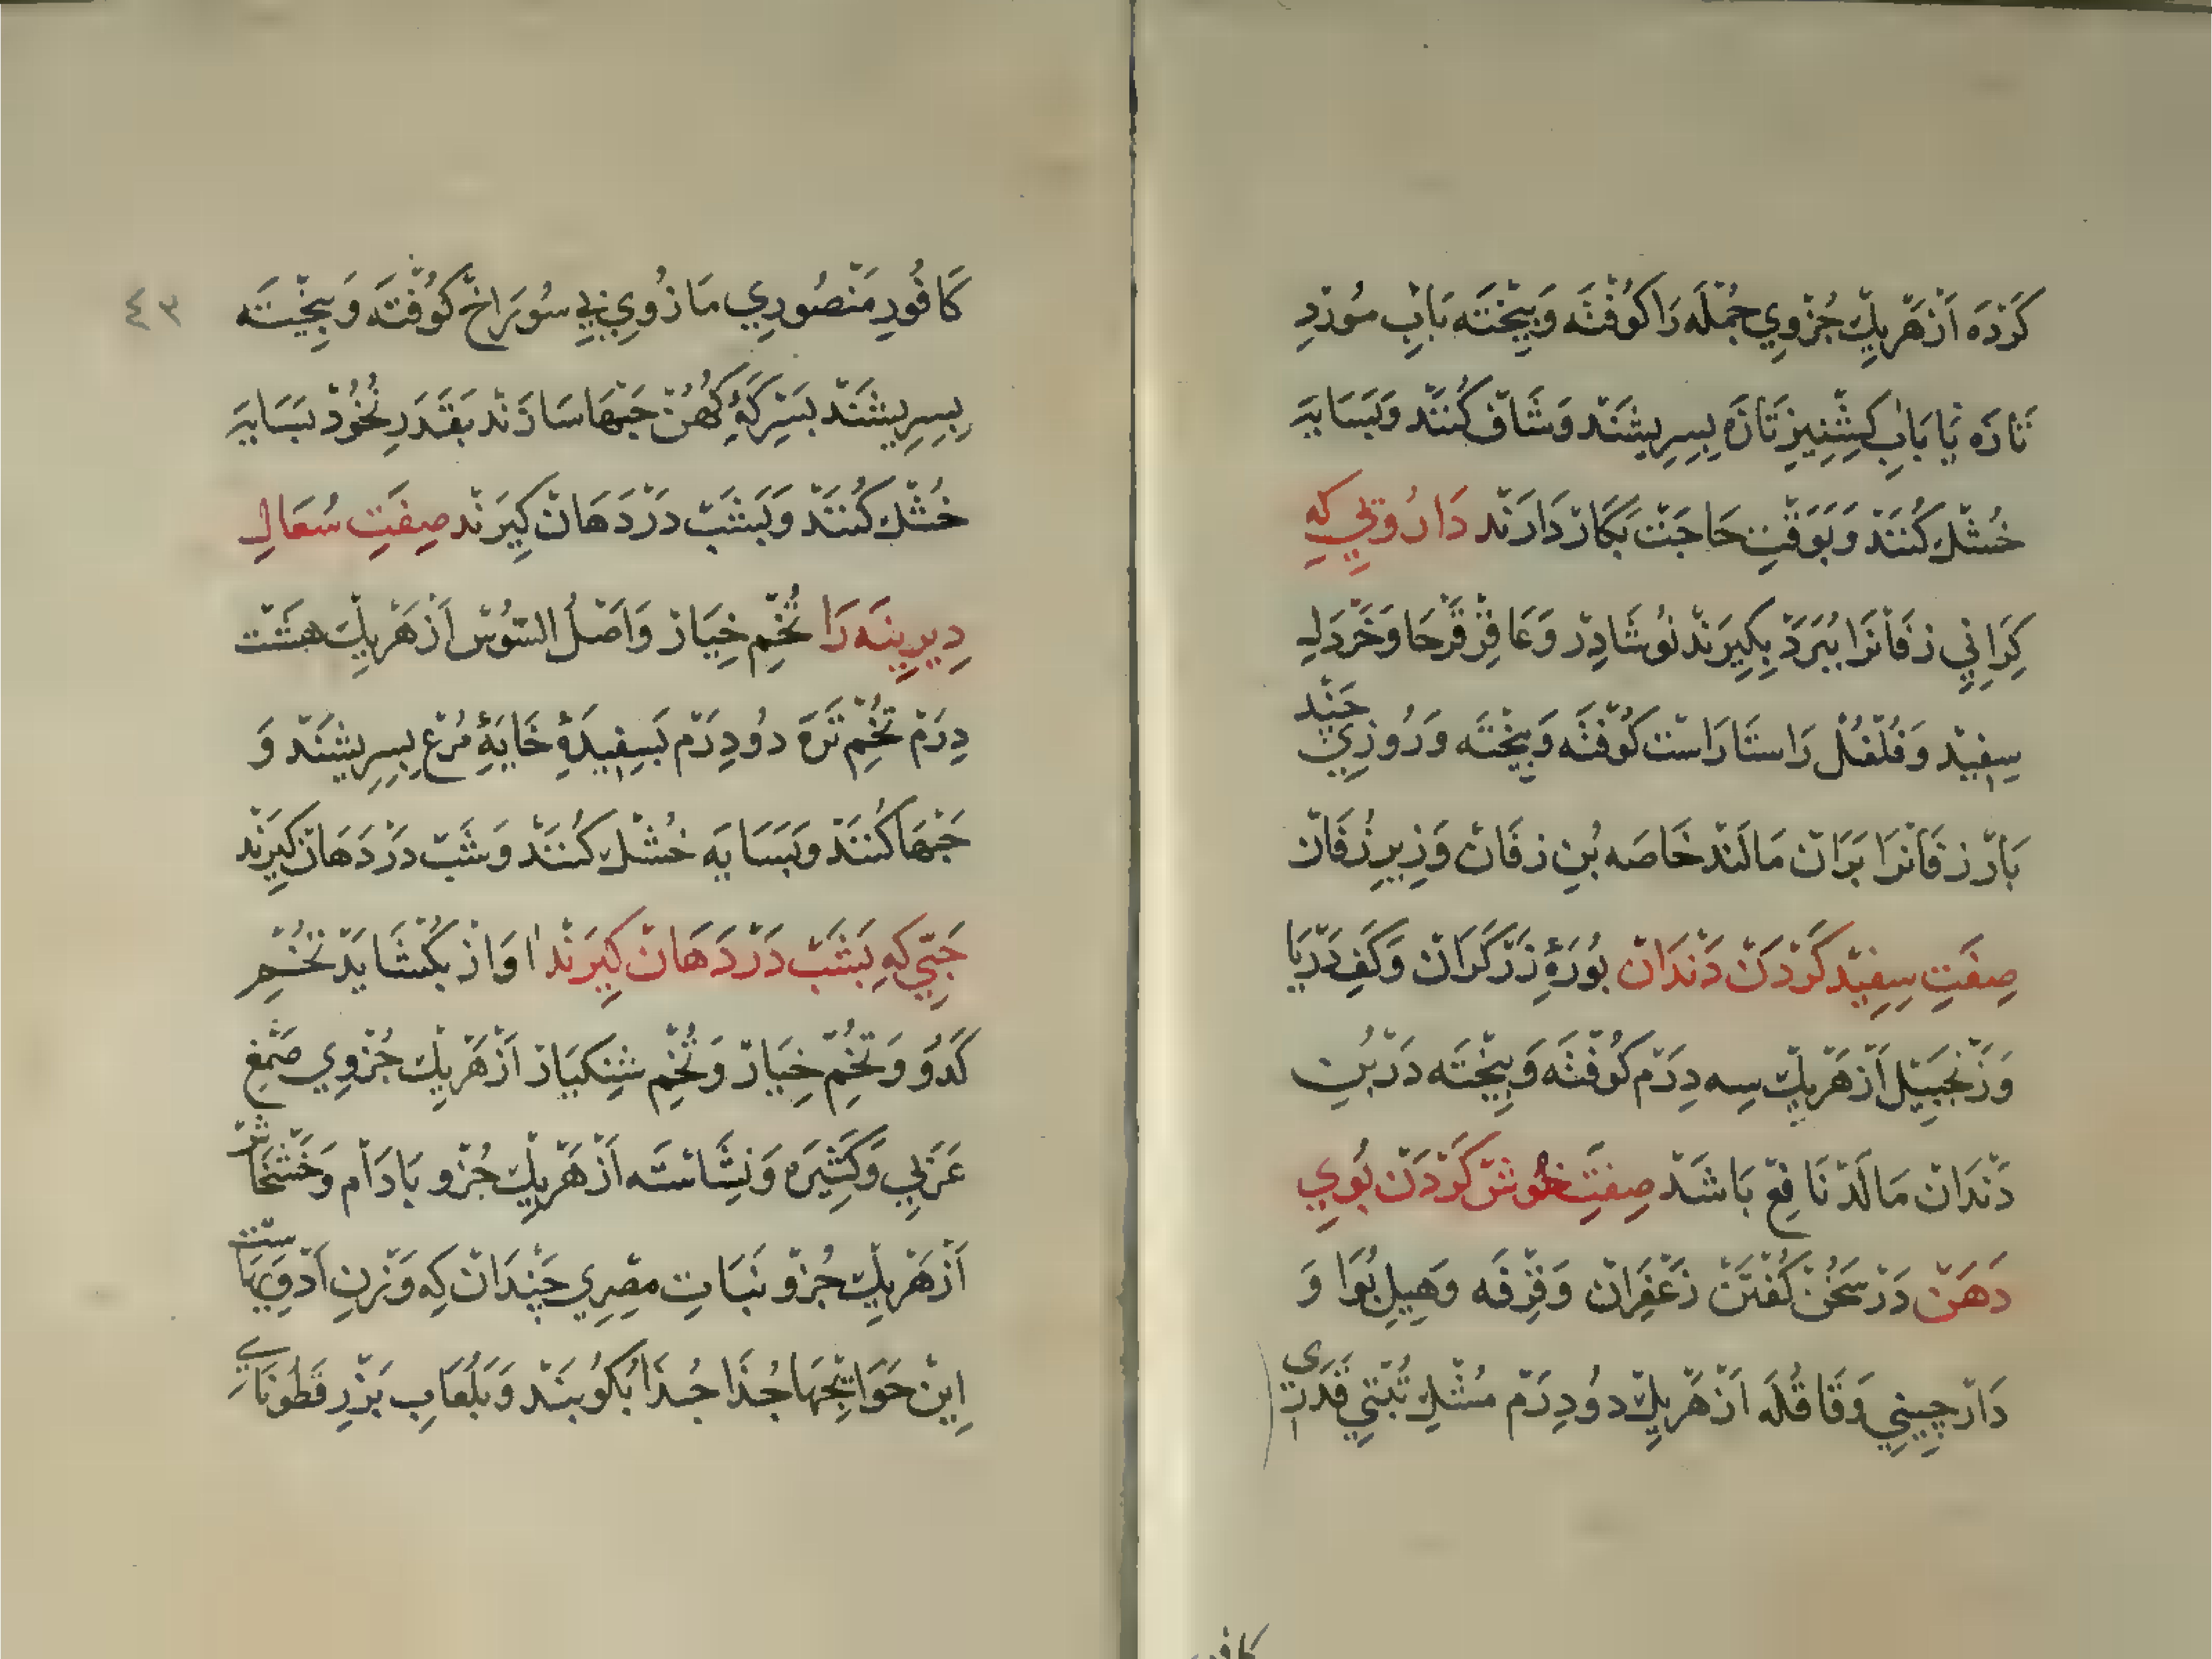 کَرْدَه اَزْ هَرْ یِكْ جُزْوِي جُمْلَه رَا کُوفْتَه وَ بِیخْتَه بَابِ مُورْدِ
تَازَه یَا بَابِ کِشْنِیزِ تَازَه بِسِرِیشَنْد وَ شَافْ کُنَنْد وَ بَسَایَه
خُشْك کُنَنْد وَ بَوَقْتِ حَاجَتْ بَکَارْ دَارَنْد دَارُوئِي کِه
کِرَانِي زفَانْرَا بُبَرَدْ بِکِیرَنْد نُوشَادِرْ وَ عَاقِرْقَرْحَا وَ خَرْدَلِ
سِفِیدْ وَ فُلْفُلْ رَاسْتَا رَاسْت کُوفْتَه وَ بِیخْتَه وَ رُوزِي چَنْد
بَارْ زفَانْرَا بَرَانْ مَالَنْد خَاصَه بُنِ زفَانْ وَ زِیرِ زُفَانْ
صِفَتِ سِفِیدْ کَرْدَنْ دَنْدَانْ بُورَۀِ زَرْکَرَانْ وَ کَفِ دَرْیَا
وَ زَنْجَبِیلْ اَزْ هَرْ یِكْ سِه دِرَمْ کُوفْتَه وَ بِیخْتَه دَرْ بُنِ
دَنْدَانْ مَالَدْ نَافِعْ بَاشَدْ صِفَتِ خُوشْ کَرْدَنْ بُويِ
دَهَنْ دَرْ سَخُنْ کُفْتَنْ زَعْفَرَانْ وَ قِرْفَه وَ هِیلِ بُوَا وَ
دَارْچِینِي وَ قَاقُلَه اَزْ هَرْ یِكْ دُو دِرَمْ مُشْكِ تُبَّتِي قَدَرِی
کافور
٤٣
کَافُورِ مَنْصُورِي مَازُويِ بِي سُورَاخْ کُوفْتَه وَ بِیخْتَه
بِسِرِیشَنْد بَسِرْکَۀِ کُهُنْ حَبْهَا سَازَنْد بَقَدَرِ نُخُودْ بَسَایَه
خُشْك کُنَنْد وَ بَشَبْ دَرْ دَهَانْ کِیرَنْد صِفَتِ سُعَالِ
دِیرِینَه رَا تُخْمِ خِیَارْ وَ اَصْلُ السُّوسْ اَزْ هَرْ یِكْ هَشْت
دِرَمْ تُخْمِ تَرَه دُو دِرَمْ بَسِفِیدَۀِ خَایَۀِ مُرْغ بِسِرِیشَنْد وَ
حَبْهَا کُنَنْد وَ بَسَایَه خُشْك کُنَنْد وَ شَبْ دَرْ دَهَانْ کِیرَنْد
حَبِّي کِه بَشَبْ دَرْ دَهَانْ کِیرَنْد اٰوَازْ بَکُشَایَدْ تُخْمِ
کَدُو وَ تُخْمِ خِیَارْ وَ تُخْمِ شَنْکِیَارْ اَزْ هَرْ یِكْ جُزْوِي صَمْغِ
عَرَبِي وَ کَثِیرَه وَ نِشَاسْتَه اَزْ هَرْ یِكْ جُزْو بَادَام وَ خَشْخَاشْ
اَزْ هَرْ یِكْ جُزْو نَبَاتِ مِصْرِي چَنْدَانْ کِه وَزْنِ اَدْوِیَهَاسْت
اِینْ حَوَایِجْهَا جُدَا جُدَا بَکُوبَنْد وَ بَلُعَابِ بَزْرِ قَطُونَايِ